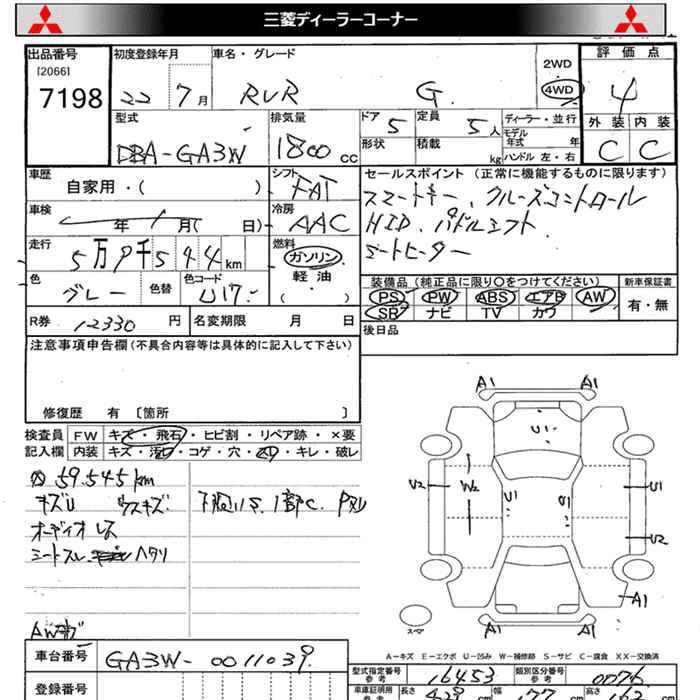 三菱ディーラーコーナー
出品番号
[2066]
7198
初度登録年月
22 7月
車名・グレード
RVR G.
2WD
4WD
評価点
4
外装 内装
C C
型式
DBA-GA3W
排気量
1800 cc
ドア 5
定員 5人
形状
積載 kg
ディーラー・並行
モデル年式 年
ハンドル 左・右
車歴
自家用・( )
シフト
FAT
車検
年 月( 日)
冷房
AAC
走行
5万9千544km
燃料
ガソリン
軽油
( )
色
グレー
色替
色コード
U17
セールスポイント (正常に機能するものに限ります)
スマートキー、クルーズコントロール
HID、パドルシフト、
シートヒーター
装備品 (純正品に限り○をつけてください)
PS PW ABS エアB AW
SR ナビ TV カワ
新車保証書
有・無
R券 12330 円
名変期限 月 日
後日品
注意事項申告欄(不具合内容等は具体的に記入して下さい)
修復歴 有 〔箇所 〕
検査員 FW キズ・飛石・ヒビ割・リペア跡・×要
記入欄 内装 キズ・汚れ・コゲ・穴・スレ・キレ・破レ
59.545km
キズU ウスキズ
オーディオレス
シートスレ ヘタリ
A1 A1
U1
U2 W2 U1 U1
U2
A1
A1 A1
スペア
A-キズ E-エクボ U-凹み W-補修跡 S-サビ C-腐食 XX-交換済
車台番号
GA3W-0011039
登録番号
型式指定番号
参考
16453
類別区分番号
参考
0076
車庫証明用
参考
長さ
幅
高さ
cm